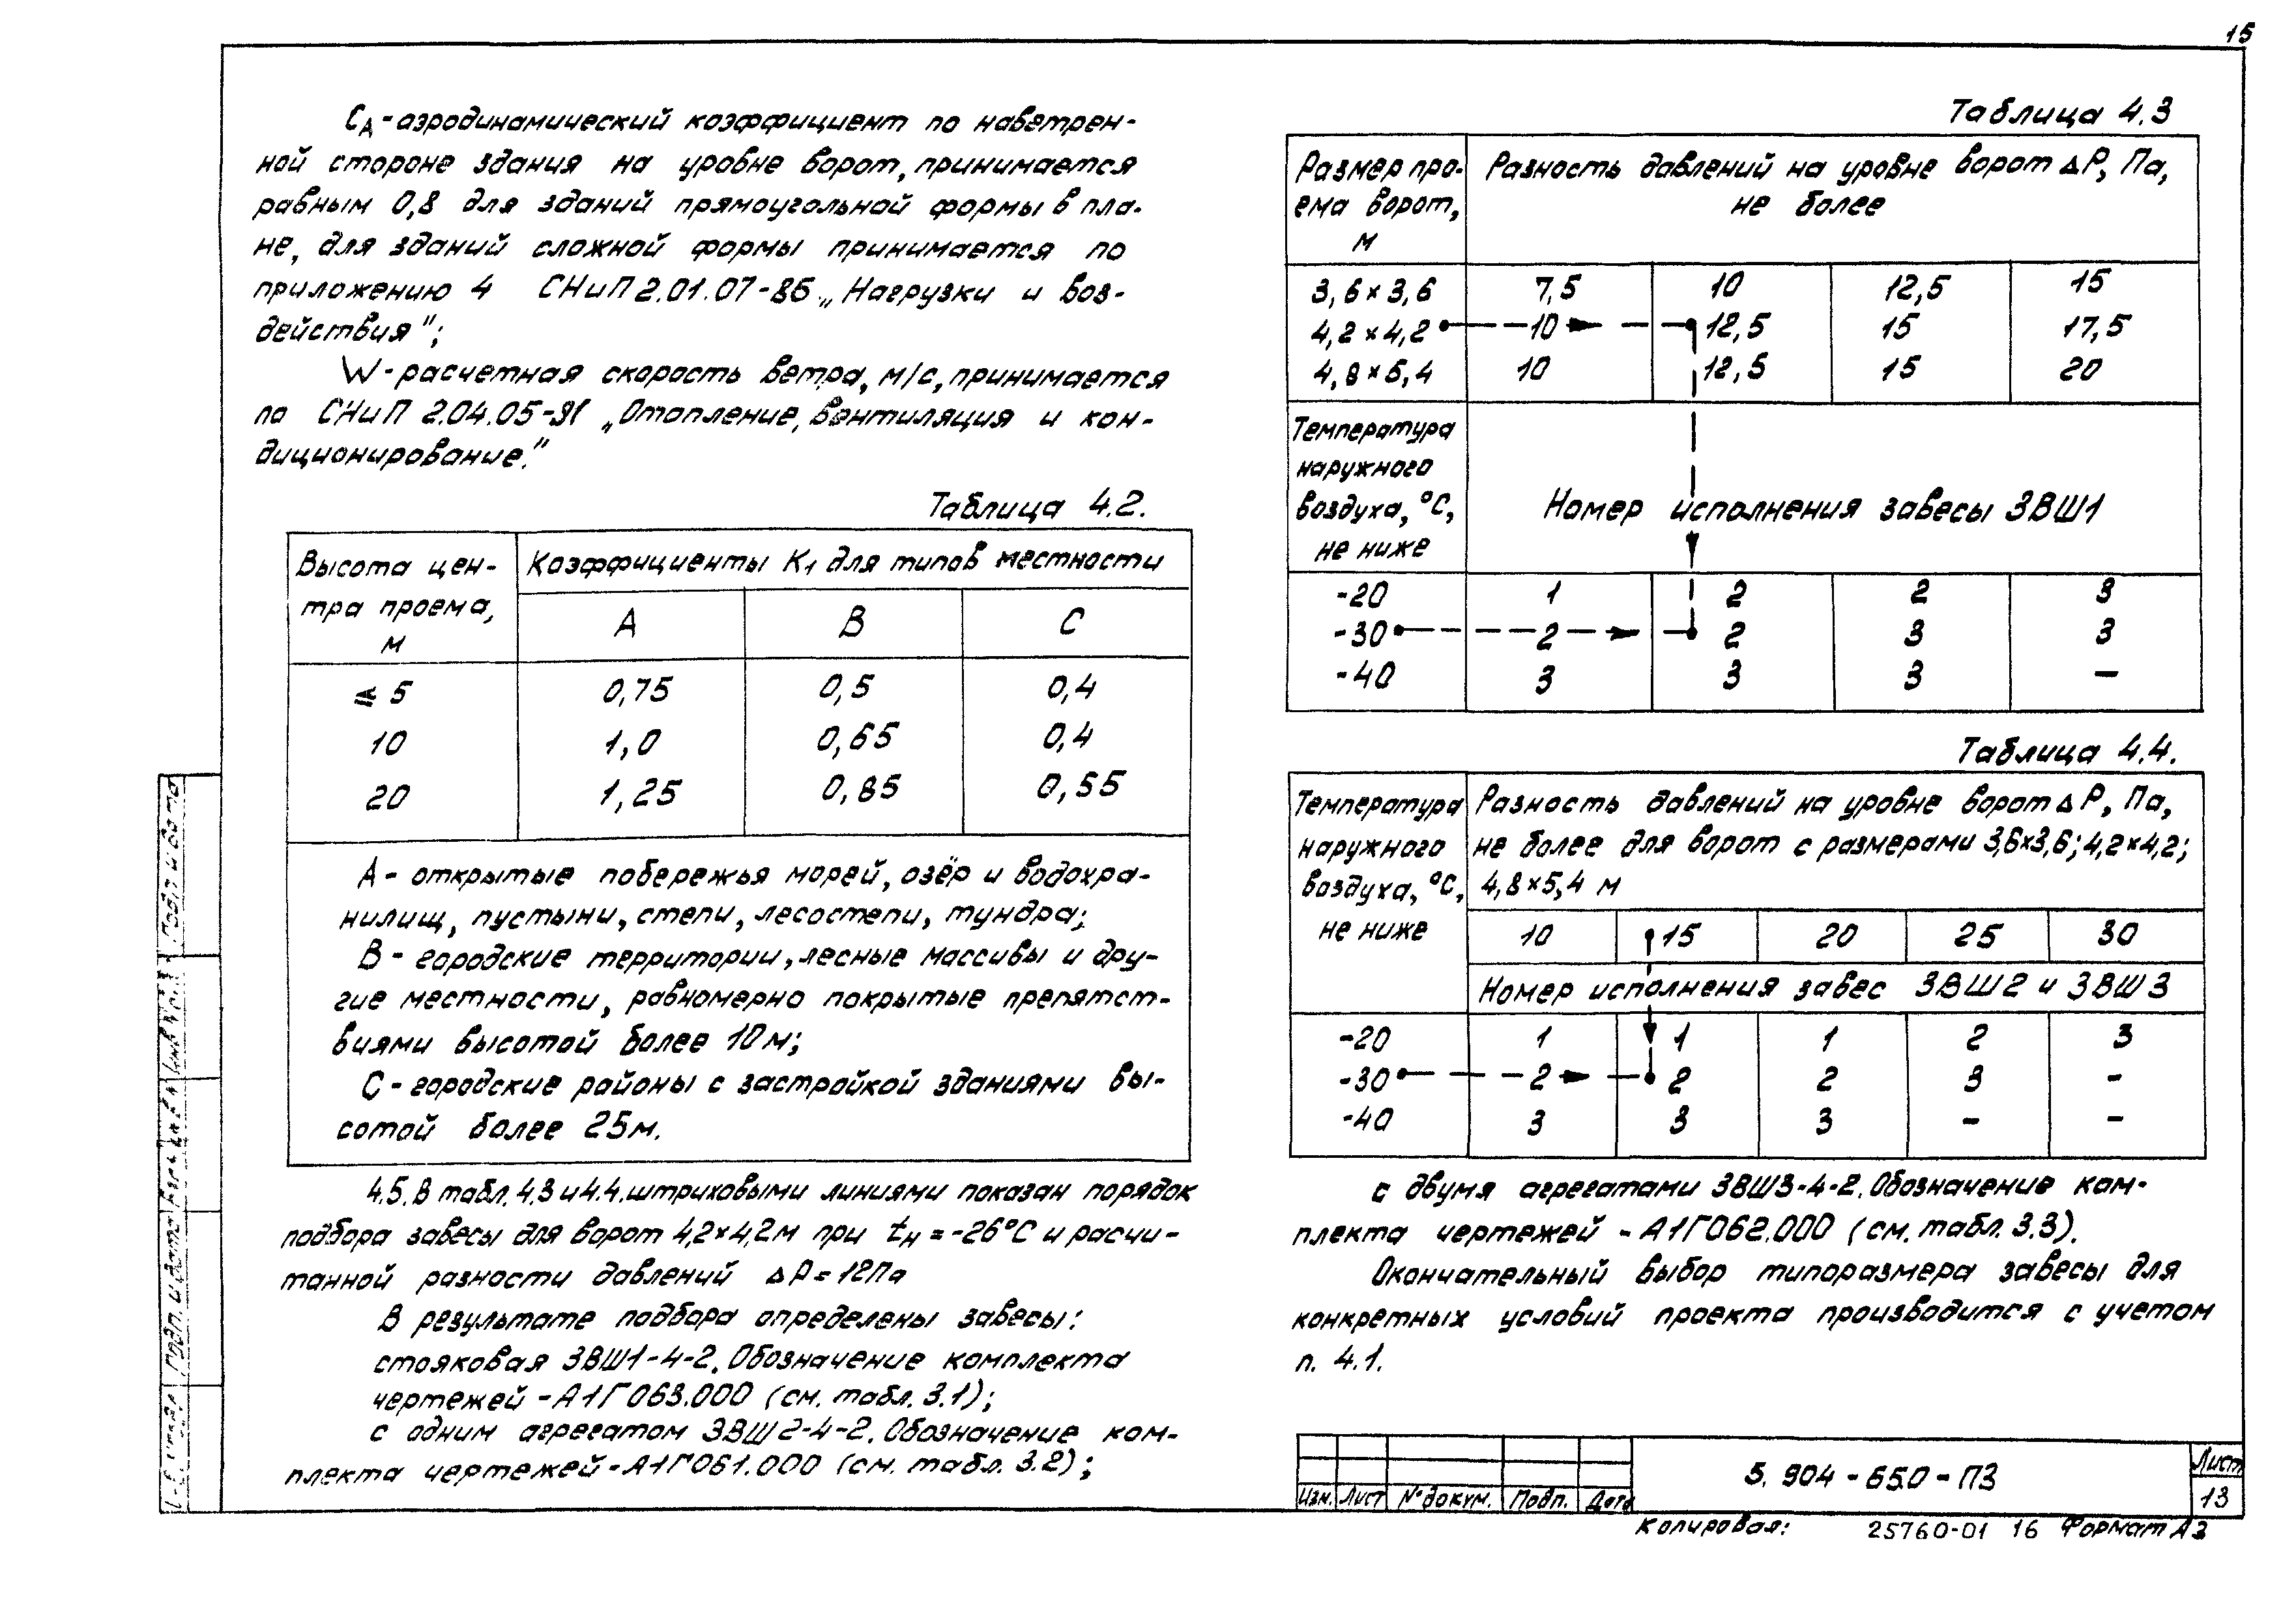 15
C_A - аэродинамический коэффициент по наветрен-
ной стороне здания на уровне ворот, принимается
равным 0,8 для зданий прямоугольной формы в пла-
не, для зданий сложной формы принимается по
приложению 4 СНиП 2.01.07-85 „Нагрузки и воз-
действия";
W - расчетная скорость ветра, м/с, принимается
по СНиП 2.04.05-91 „Отопление, вентиляция и кон-
диционирование."
Таблица 4.2.
Высота цен- Коэффициенты K₁ для типов местности
тра проема, А В С
м
≤ 5 0,75 0,5 0,4
10 1,0 0,65 0,4
20 1,25 0,85 0,55
А - открытые побережья морей, озёр и водохра-
нилищ, пустыни, степи, лесостепи, тундра;
В - городские территории, лесные массивы и дру-
гие местности, равномерно покрытые препятст-
виями высотой более 10 м;
С - городские районы с застройкой зданиями вы-
сотой более 25м.
4.5. В табл. 4.3 и 4.4. штриховыми линиями показан порядок
подбора завесы для ворот 4,2×4,2м при tн = -26°С и расчи-
танной разности давлений ΔР = 12Па
В результате подбора определены завесы:
стояковая ЗВШ1-4-2. Обозначение комплекта
чертежей - А1Г063.000 (см. табл. 3.1);
с одним агрегатом ЗВШ2-4-2. Обозначение ком-
плекта чертежей - А1Г061.000 (см. табл. 3.2);
Таблица 4.3
Размер про- Разность давлений на уровне ворот ΔР, Па,
ема ворот, не более
м
3,6×3,6 7,5 10 12,5 15
4,2×4,2 10 12,5 15 17,5
4,8×5,4 10 12,5 15 20
Температура
наружного
воздуха, °С, Номер исполнения завесы ЗВШ1
не ниже
-20 1 2 2 3
-30 2 2 3 3
-40 3 3 3 -
Таблица 4.4.
Температура Разность давлений на уровне ворот ΔР, Па,
наружного не более для ворот с размерами 3,6×3,6; 4,2×4,2;
воздуха, °С, 4,8×5,4 м
не ниже 10 15 20 25 30
Номер исполнения завес ЗВШ2 и ЗВШ3
-20 1 1 1 2 3
-30 2 2 2 3 -
-40 3 3 3 - -
с двумя агрегатами ЗВШ3-4-2. Обозначение ком-
плекта чертежей - А1Г062.000 (см. табл. 3.3).
Окончательный выбор типоразмера завесы для
конкретных условий проекта производится с учетом
п. 4.1.
Изм. Лист № докум. Подп. Дата
5.904-65.0-ПЗ
Лист
13
Копировал: 25760-01 16 Формат А3
Подп. и дата